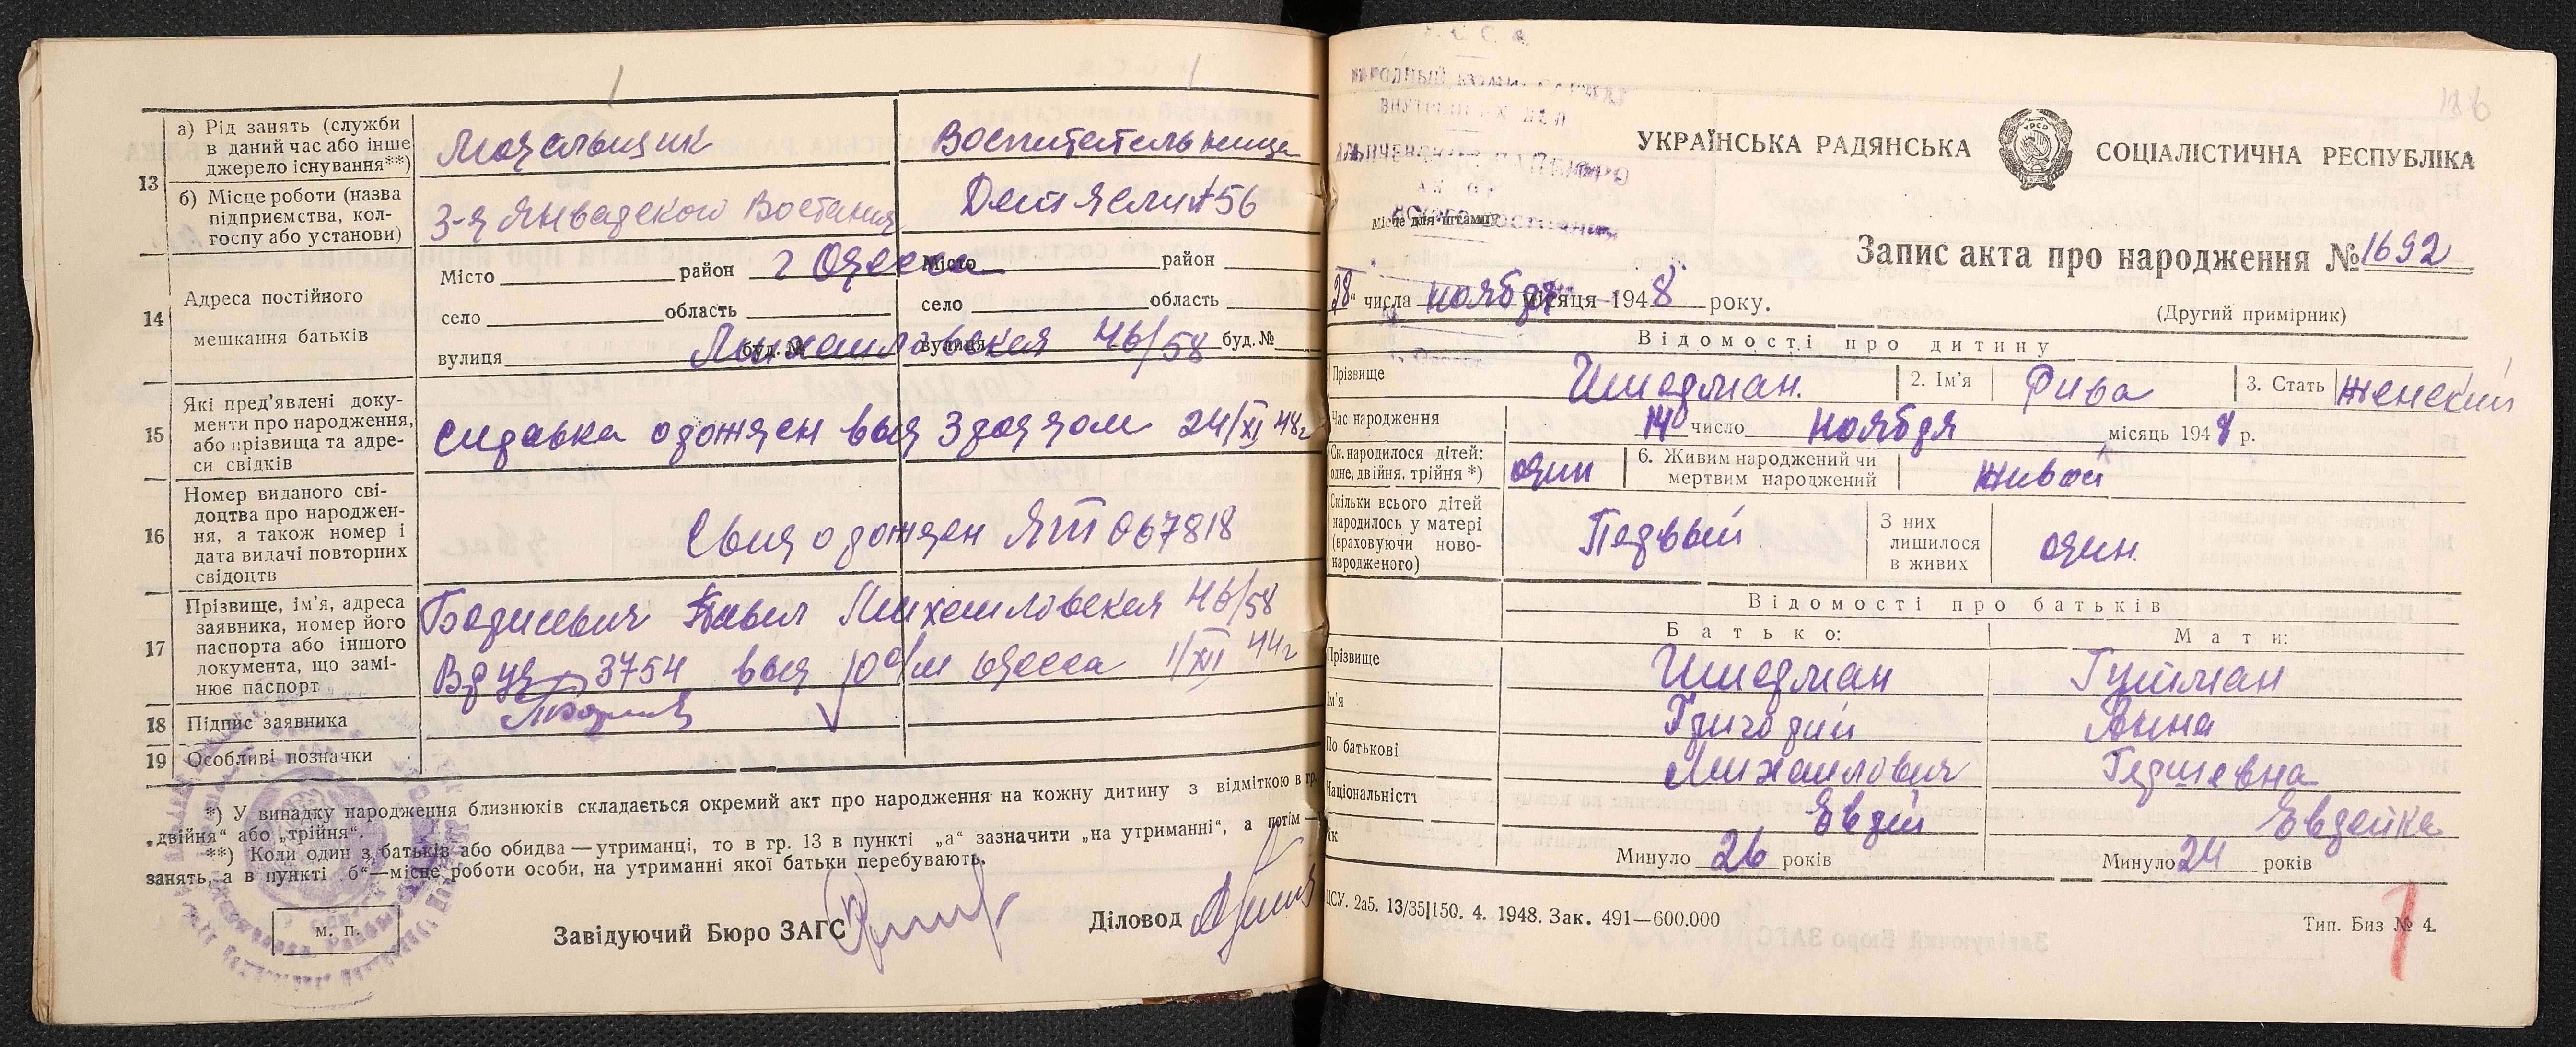 13
а) Рід занять (служби
в даний час або інше
джерело існування**)
Модельщик
Воспитательница
б) Місце роботи (назва
підприємства, кол-
госпу або установи)
З-д Январского Востания
Дет ясли №56
14
Адреса постійного
мешкання батьків
Місто район г Одесса Місто район
село область село область
вулиця буд. № Михайловская 46/58 вулиця буд. №
15
Які пред'явлені доку-
менти про народження,
або прізвища та адре-
си свідків
справка о рожден выд 3 род дом 24/XI 48г
16
Номер виданого сві-
доцтва про народжен-
ня, а також номер і
дата видачі повторних
свідоцтв
Свид о рожден ЯТ 067818
17
Прізвище, ім'я, адреса
заявника, номер його
паспорта або іншого
документа, що замі-
нює паспорт
Павел Михайловская 46/58
3754 выд 10 о/м Одесса 44г
18 Підпис заявника
19 Особливі позначки
*) У випадку народження близнюків складається окремий акт про народження на кожну дитину з відміткою в гр.
„двійня“ або „трійня“.
**) Коли один з батьків або обидва — утриманці, то в гр. 13 в пункті „а“ зазначити „на утриманні“, а потім —
занять, а в пункті „б“—місце роботи особи, на утриманні якої батьки перебувають.
м. п.
Завідуючий Бюро ЗАГС
Діловод
УКРАЇНСЬКА РАДЯНСЬКА СОЦІАЛІСТИЧНА РЕСПУБЛІКА
Місце для штампу
Запис акта про народження № 1692
28 числа ноября місяця 1948 року.
(Другий примірник)
Відомості про дитину
Прізвище Шперман. 2. Ім'я Рива 3. Стать Женский
Час народження 14 число ноября місяць 1948 р.
Ск. народилося дітей:
одне, двійня, трійня *) один
6. Живим народжений чи
мертвим народжений
живой
Скільки всього дітей
народилось у матері
(враховуючи ново-
народженого)
Первый
З них
лишилося
в живих
один.
Відомості про батьків
Батько: Мати:
Прізвище Шперман Гуйман
Ім'я Григорий Анна
По батькові Михайлович Гершевна
Національність Еврей Еврейка
Вік Минуло 26 років Минуло 24 років
ЦСУ. 2а5. 13/35|150. 4. 1948. Зак. 491—600.000
Тип. Биз № 4.
1